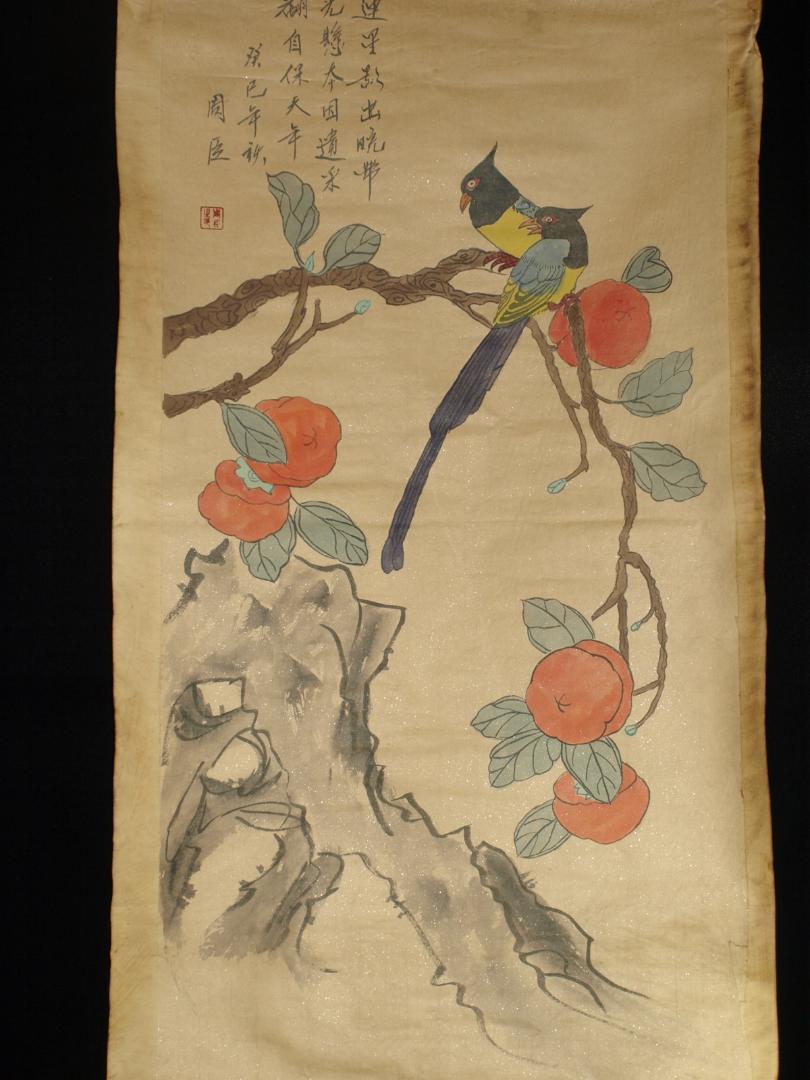 連星影出晚帶
光懸本因遺采
翻自保天年
癸巳年秋
周臣